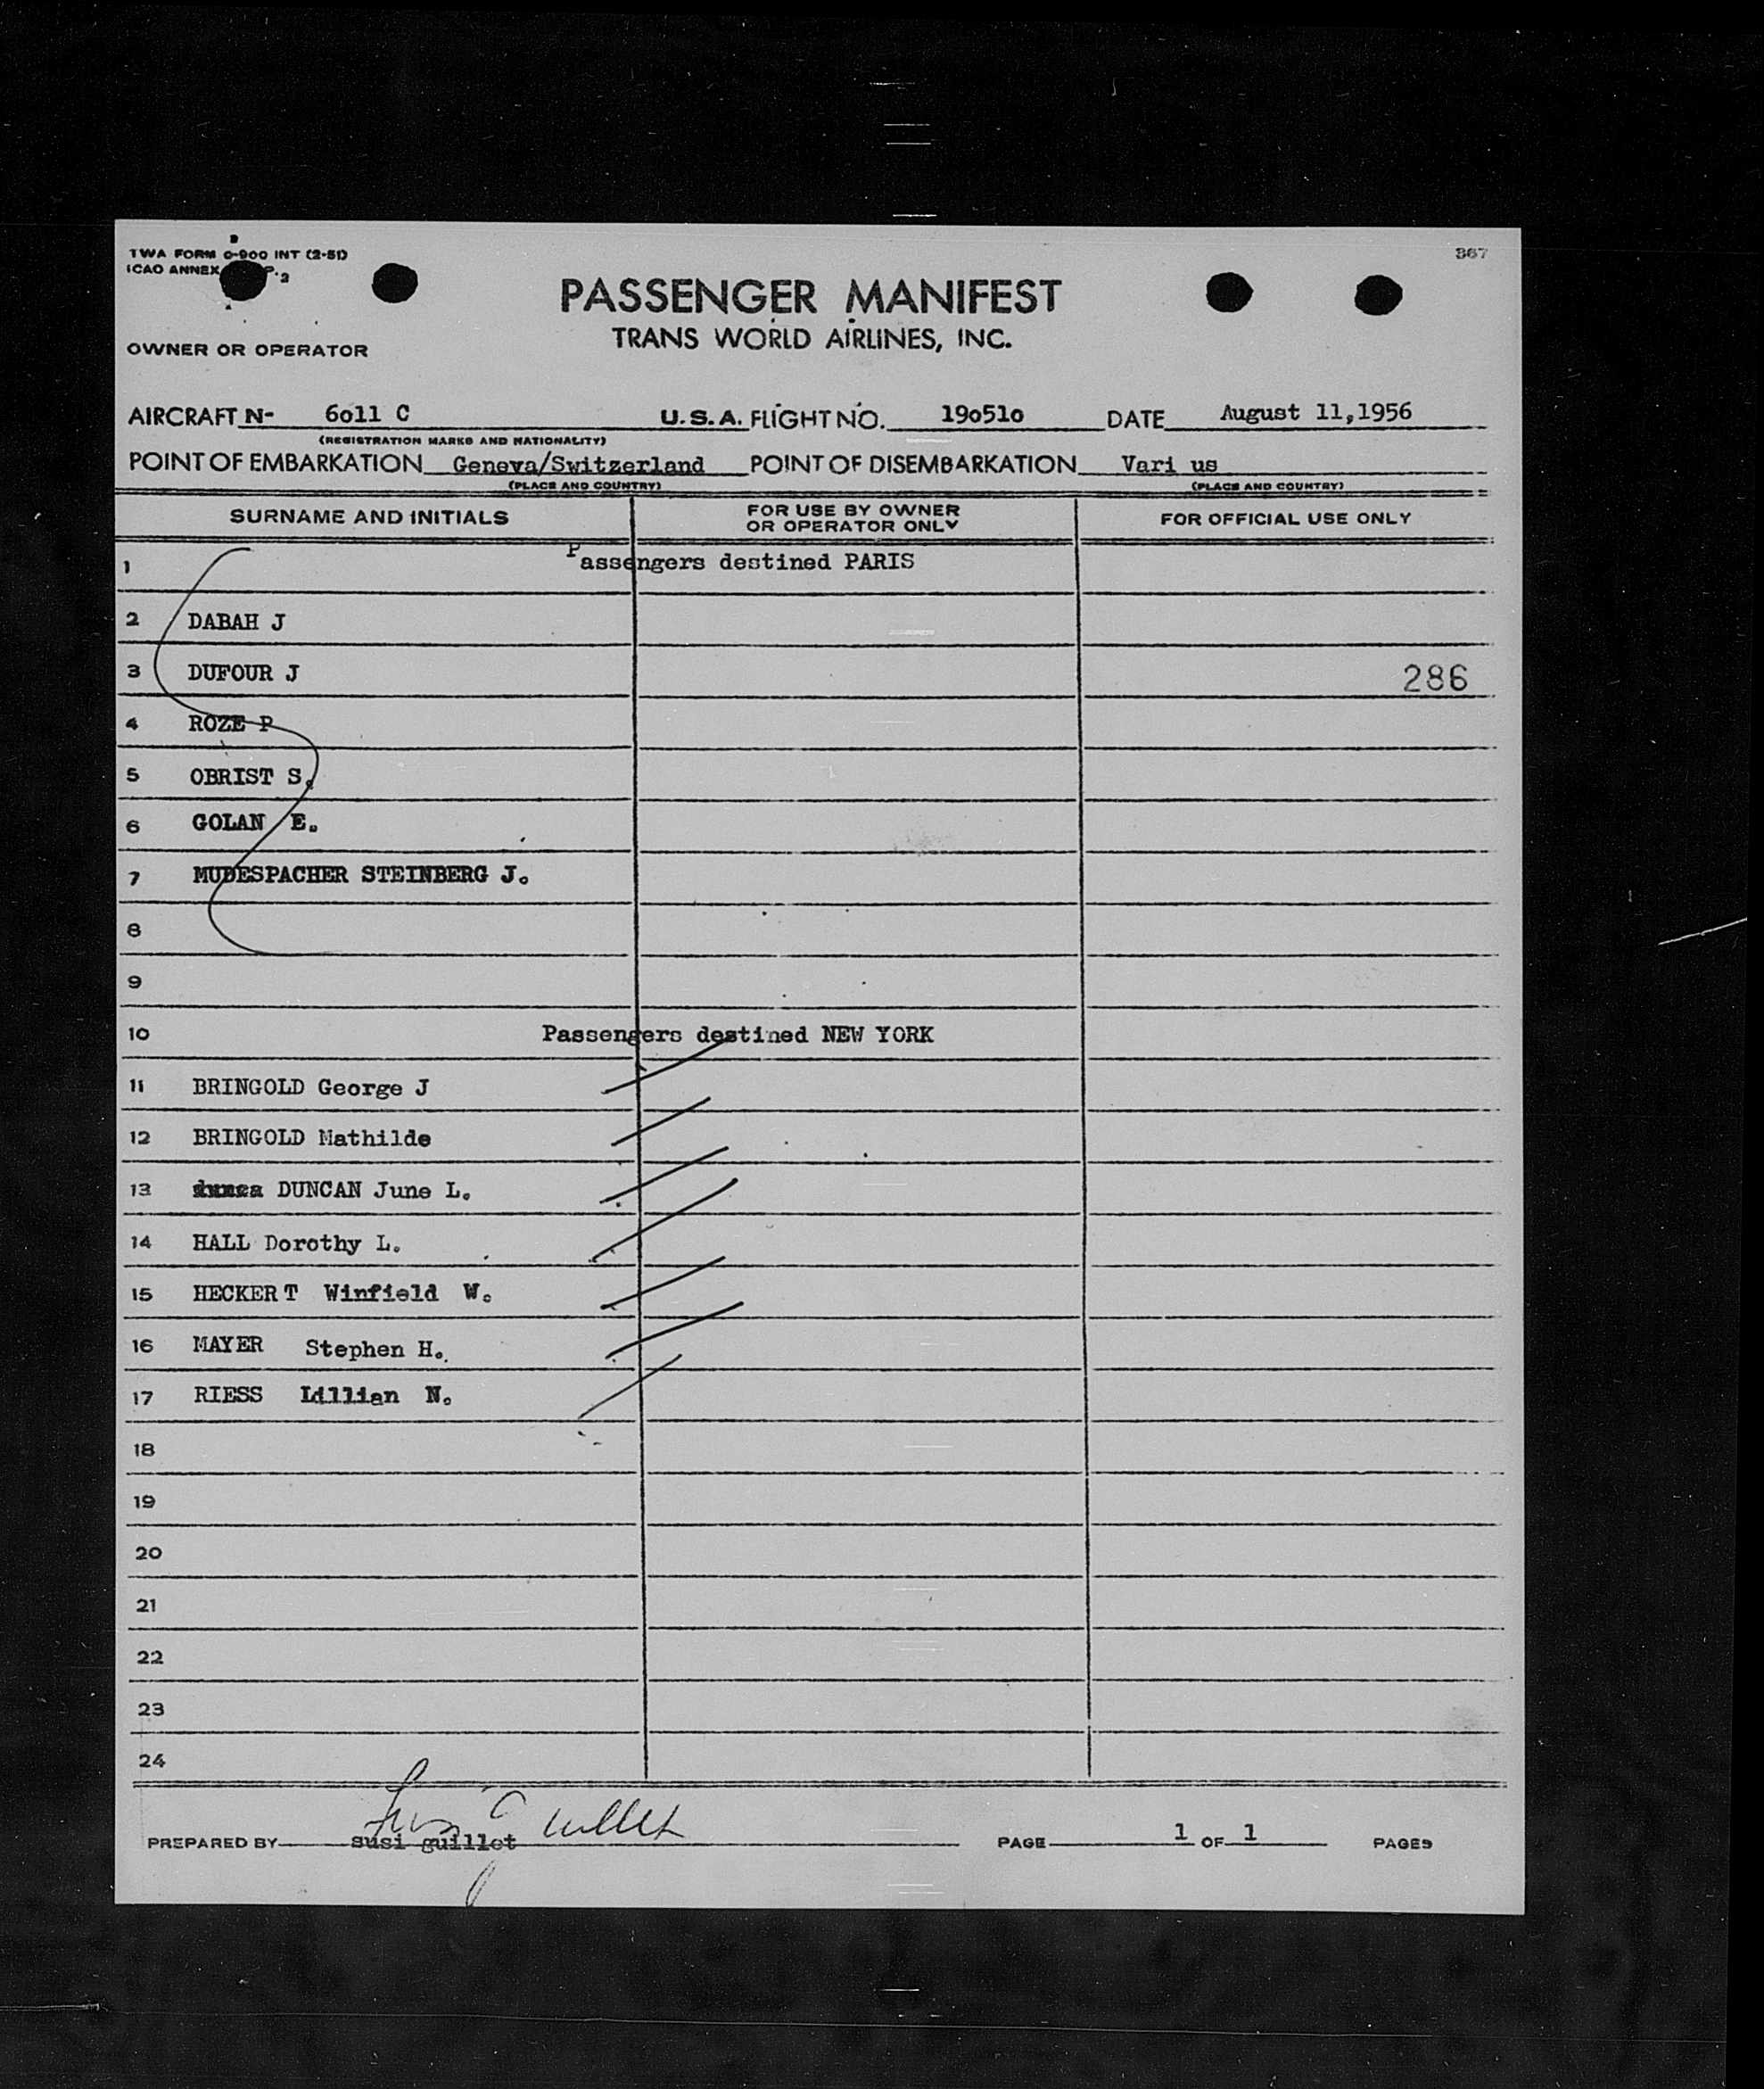 TWA FORM 0-900 INT (2-51)
ICAO ANNEX P. 2
367
PASSENGER MANIFEST
TRANS WORLD AIRLINES, INC.
OWNER OR OPERATOR
AIRCRAFT N- 6o11 C U.S.A. FLIGHT NO. 19o51o DATE August 11,1956
(REGISTRATION MARKS AND NATIONALITY)
POINT OF EMBARKATION Geneva/Switzerland POINT OF DISEMBARKATION Vari us
(PLACE AND COUNTRY) (PLACE AND COUNTRY)
SURNAME AND INITIALS FOR USE BY OWNER OR OPERATOR ONLY FOR OFFICIAL USE ONLY
1 Passengers destined PARIS
2 DABAH J
3 DUFOUR J 286
4 ROZE P
5 OBRIST S.
6 GOLAN E.
7 MUDESPACHER STEINBERG J.
8
9
10 Passengers destined NEW YORK
11 BRINGOLD George J
12 BRINGOLD Mathilde
13 DUNCAN June L.
14 HALL Dorothy L.
15 HECKERT Winfield W.
16 MAYER Stephen H.
17 RIESS Lillian N.
18
19
20
21
22
23
24
PREPARED BY susi guillet PAGE 1 OF 1 PAGES